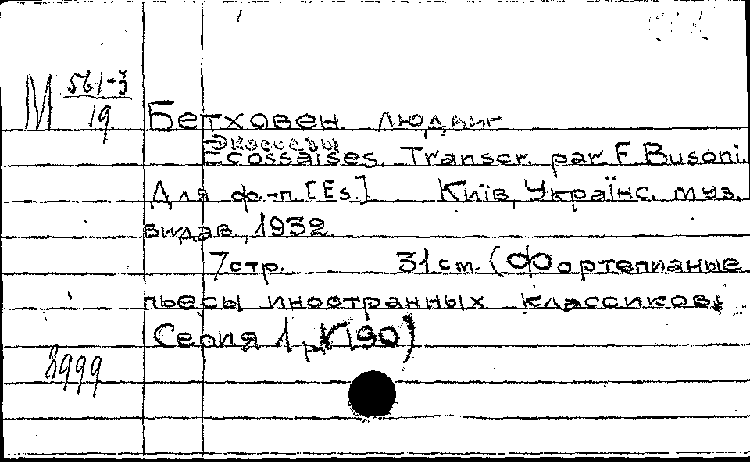 М 561-3
19
Бетховен Людвиг
Экоссезы
Ecossaises. Transcr. par F. Busoni.
Для ф.-п. [Es.] Київ, Україїнс. муз.
видав, 1932
7 стр. 31 cm. (Фортепианные
пьесы иностранных классиков,
Серия 1,
8999